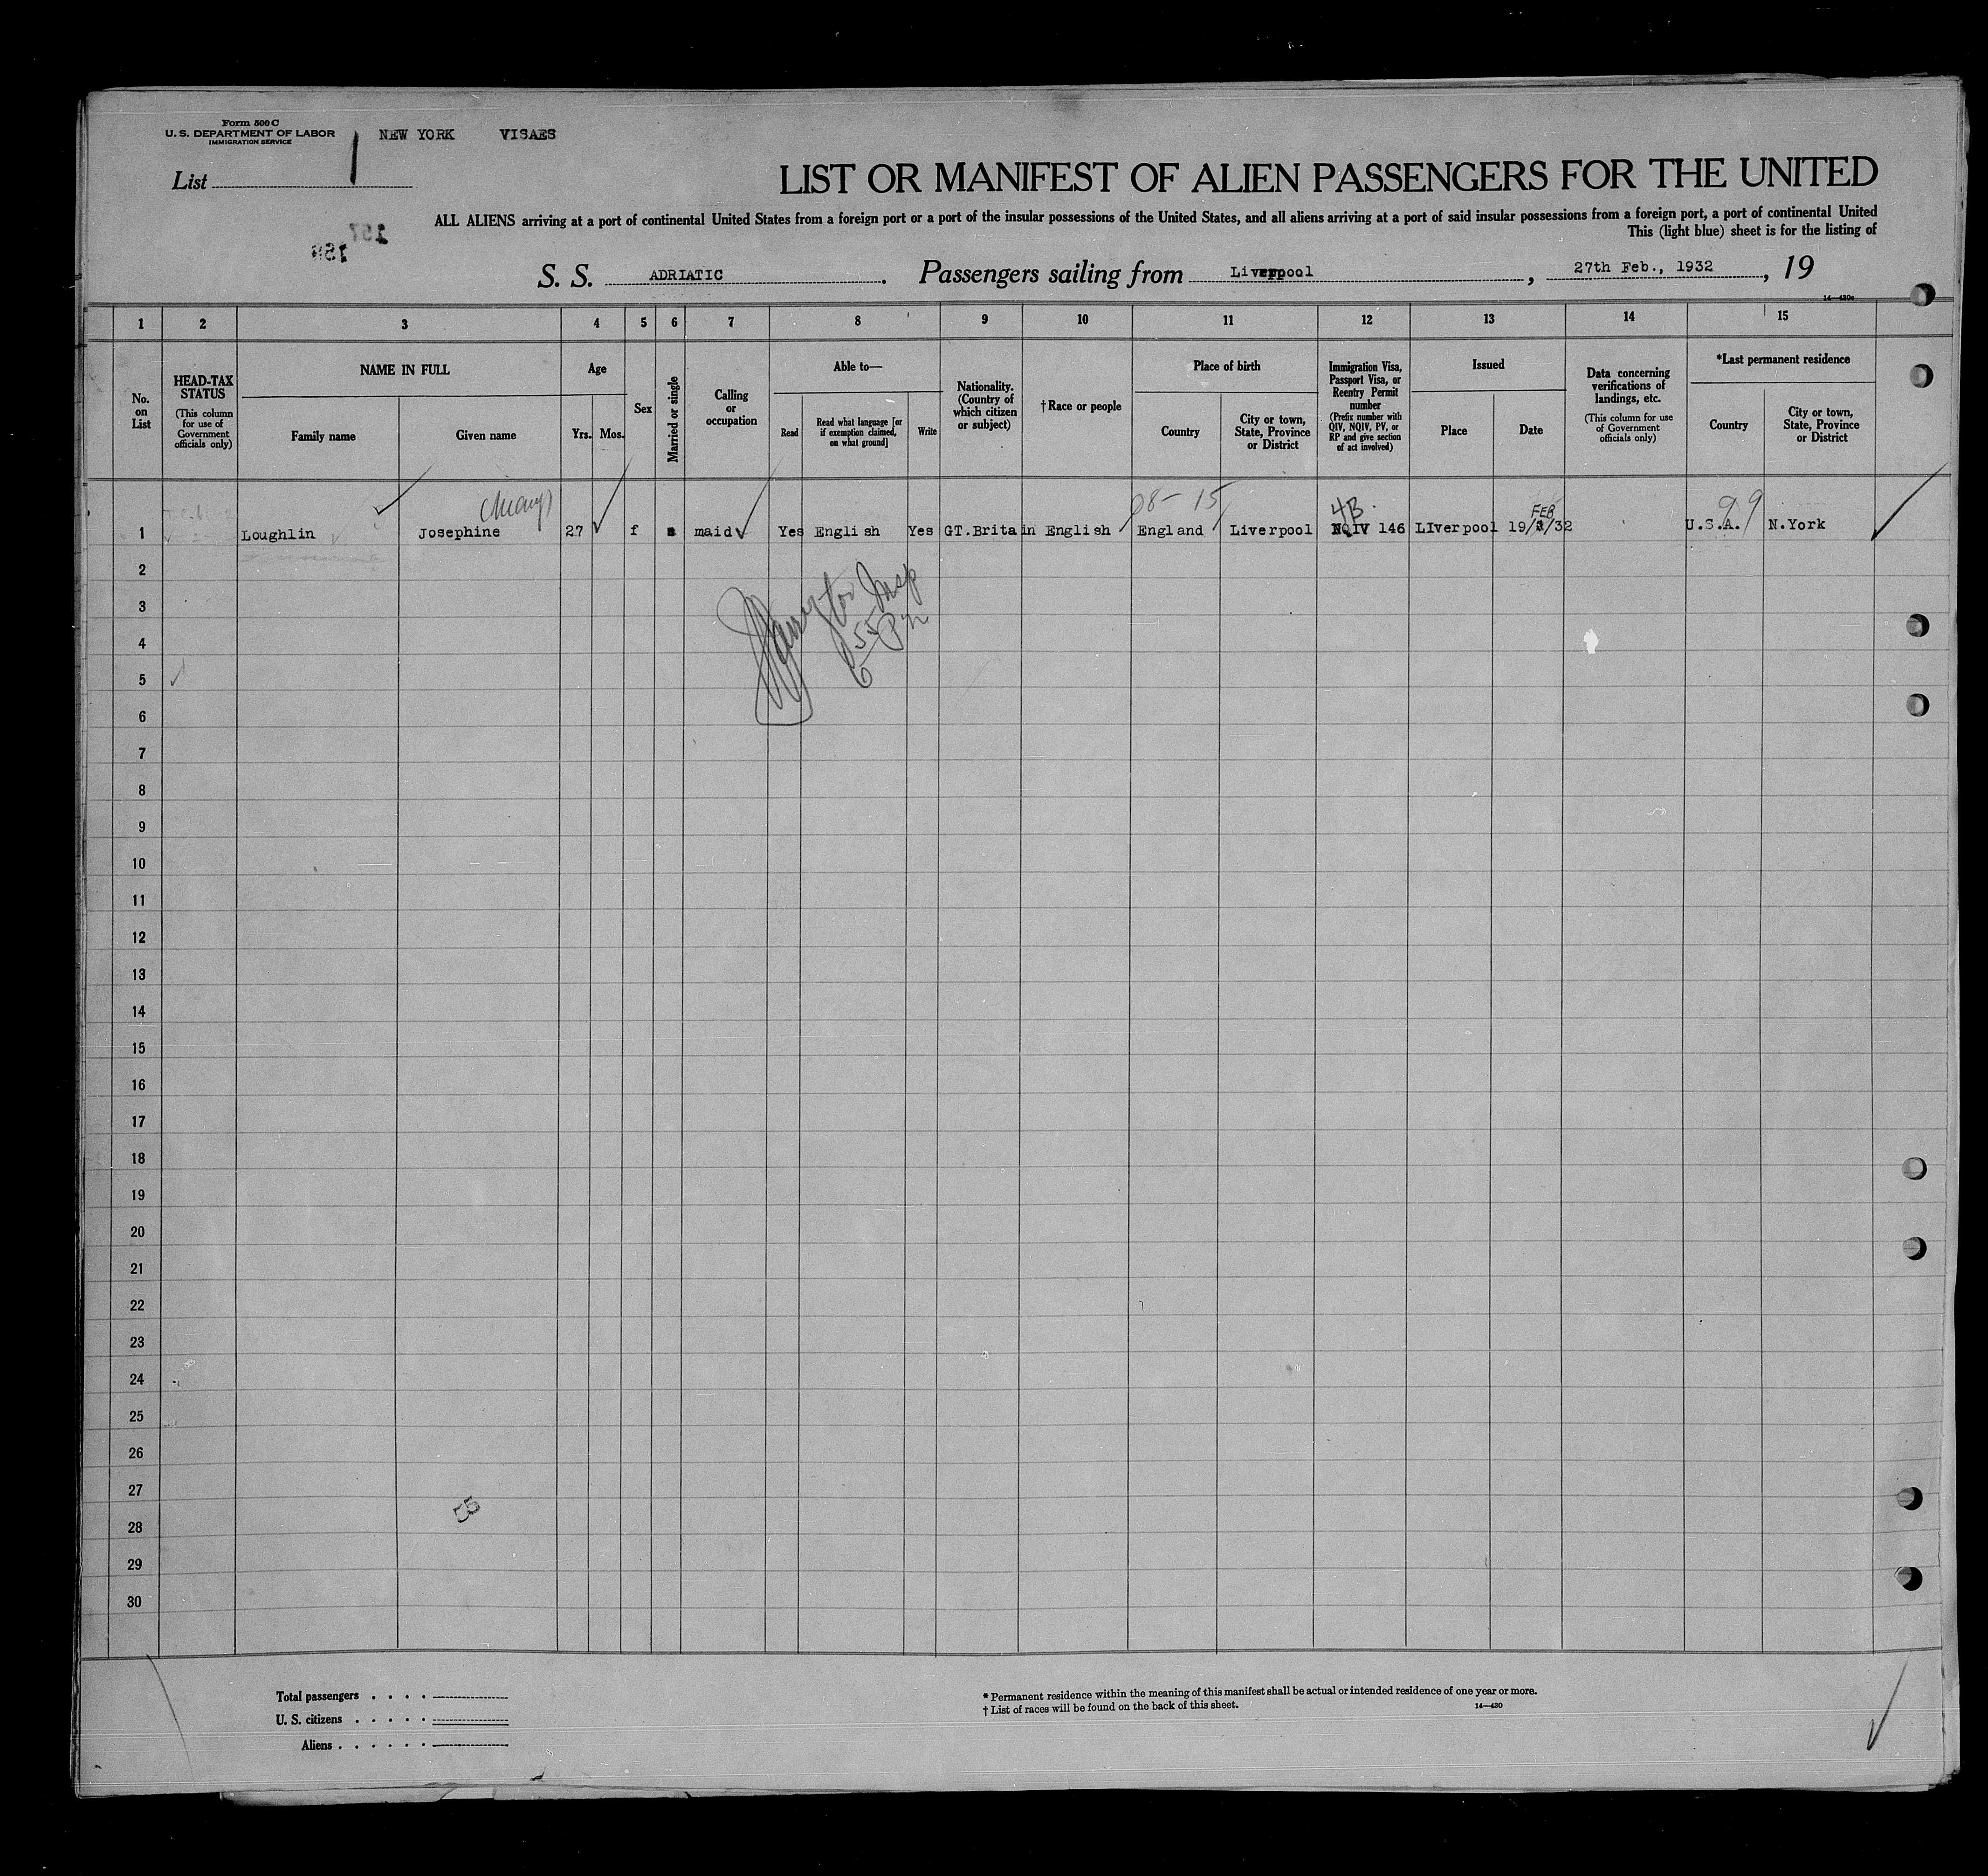 Form 500 C
U. S. DEPARTMENT OF LABOR
IMMIGRATION SERVICE
NEW YORK VISAES
List 1
LIST OR MANIFEST OF ALIEN PASSENGERS FOR THE UNITED
ALL ALIENS arriving at a port of continental United States from a foreign port or a port of the insular possessions of the United States, and all aliens arriving at a port of said insular possessions from a foreign port, a port of continental United
This (light blue) sheet is for the listing of
157
S. S. ADRIATIC. Passengers sailing from Liverpool, 27th Feb., 1932, 19
14—430c
1 2 3 4 5 6 7 8 9 10 11 12 13 14 15
No. on List
HEAD-TAX STATUS
(This column for use of Government officials only)
NAME IN FULL
Family name
Given name
Age
Yrs. Mos.
Sex
Married or single
Calling or occupation
Able to—
Read
Read what language [or if exemption claimed, on what ground]
Write
Nationality. (Country of which citizen or subject)
†Race or people
Place of birth
Country
City or town, State, Province or District
Immigration Visa, Passport Visa, or Reentry Permit number
(Prefix number with QIV, NQIV, PV, or RP and give section of act involved)
Issued
Place
Date
Data concerning verifications of landings, etc.
(This column for use of Government officials only)
*Last permanent residence
Country
City or town, State, Province or District
(Mary) 08-15 4B. FEB 99
1 Loughlin Josephine 27 f s maid Yes English Yes GT.Britain English England Liverpool NQIV 146 LIverpool 19/2/32 U.S.A. N.York
2
3
4
5
6
7
8
9
10
11
12
13
14
15
16
17
18
19
20
21
22
23
24
25
26
27
28
29
30
55
Total passengers . . . .
U. S. citizens . . . . .
Aliens . . . . . .
* Permanent residence within the meaning of this manifest shall be actual or intended residence of one year or more.
† List of races will be found on the back of this sheet.
14—430